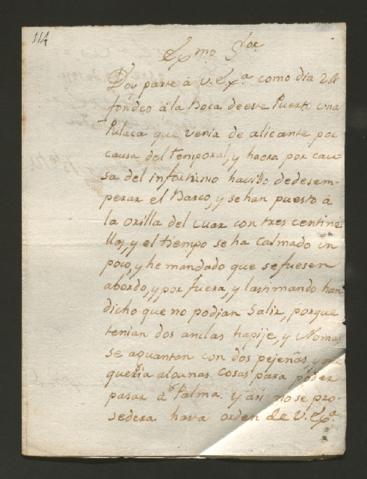 114
Exmo Sor
Doy parte á V. Exa como dia 24
fondeo á la Boca de este Puerto una
Pulaca que venia de alicante por
causa del temporal, y haora por cau
sa del infortunio havido de desem-
perar el Barco, y se han puesto á
la orilla del mar con tres centine
llas, y el tiempo se ha calmado un
poco, y he mandado que se fuesen
abordo, y por fuera, y las mando han
dicho que no podian Salir, porque
tenian dos anclas y Nomas
se aguantan con dos pejeñas, y
queria algunas cosas para poder
pasar á Palma. Y asi no se pro-
sedera hasta orden de V. Exa